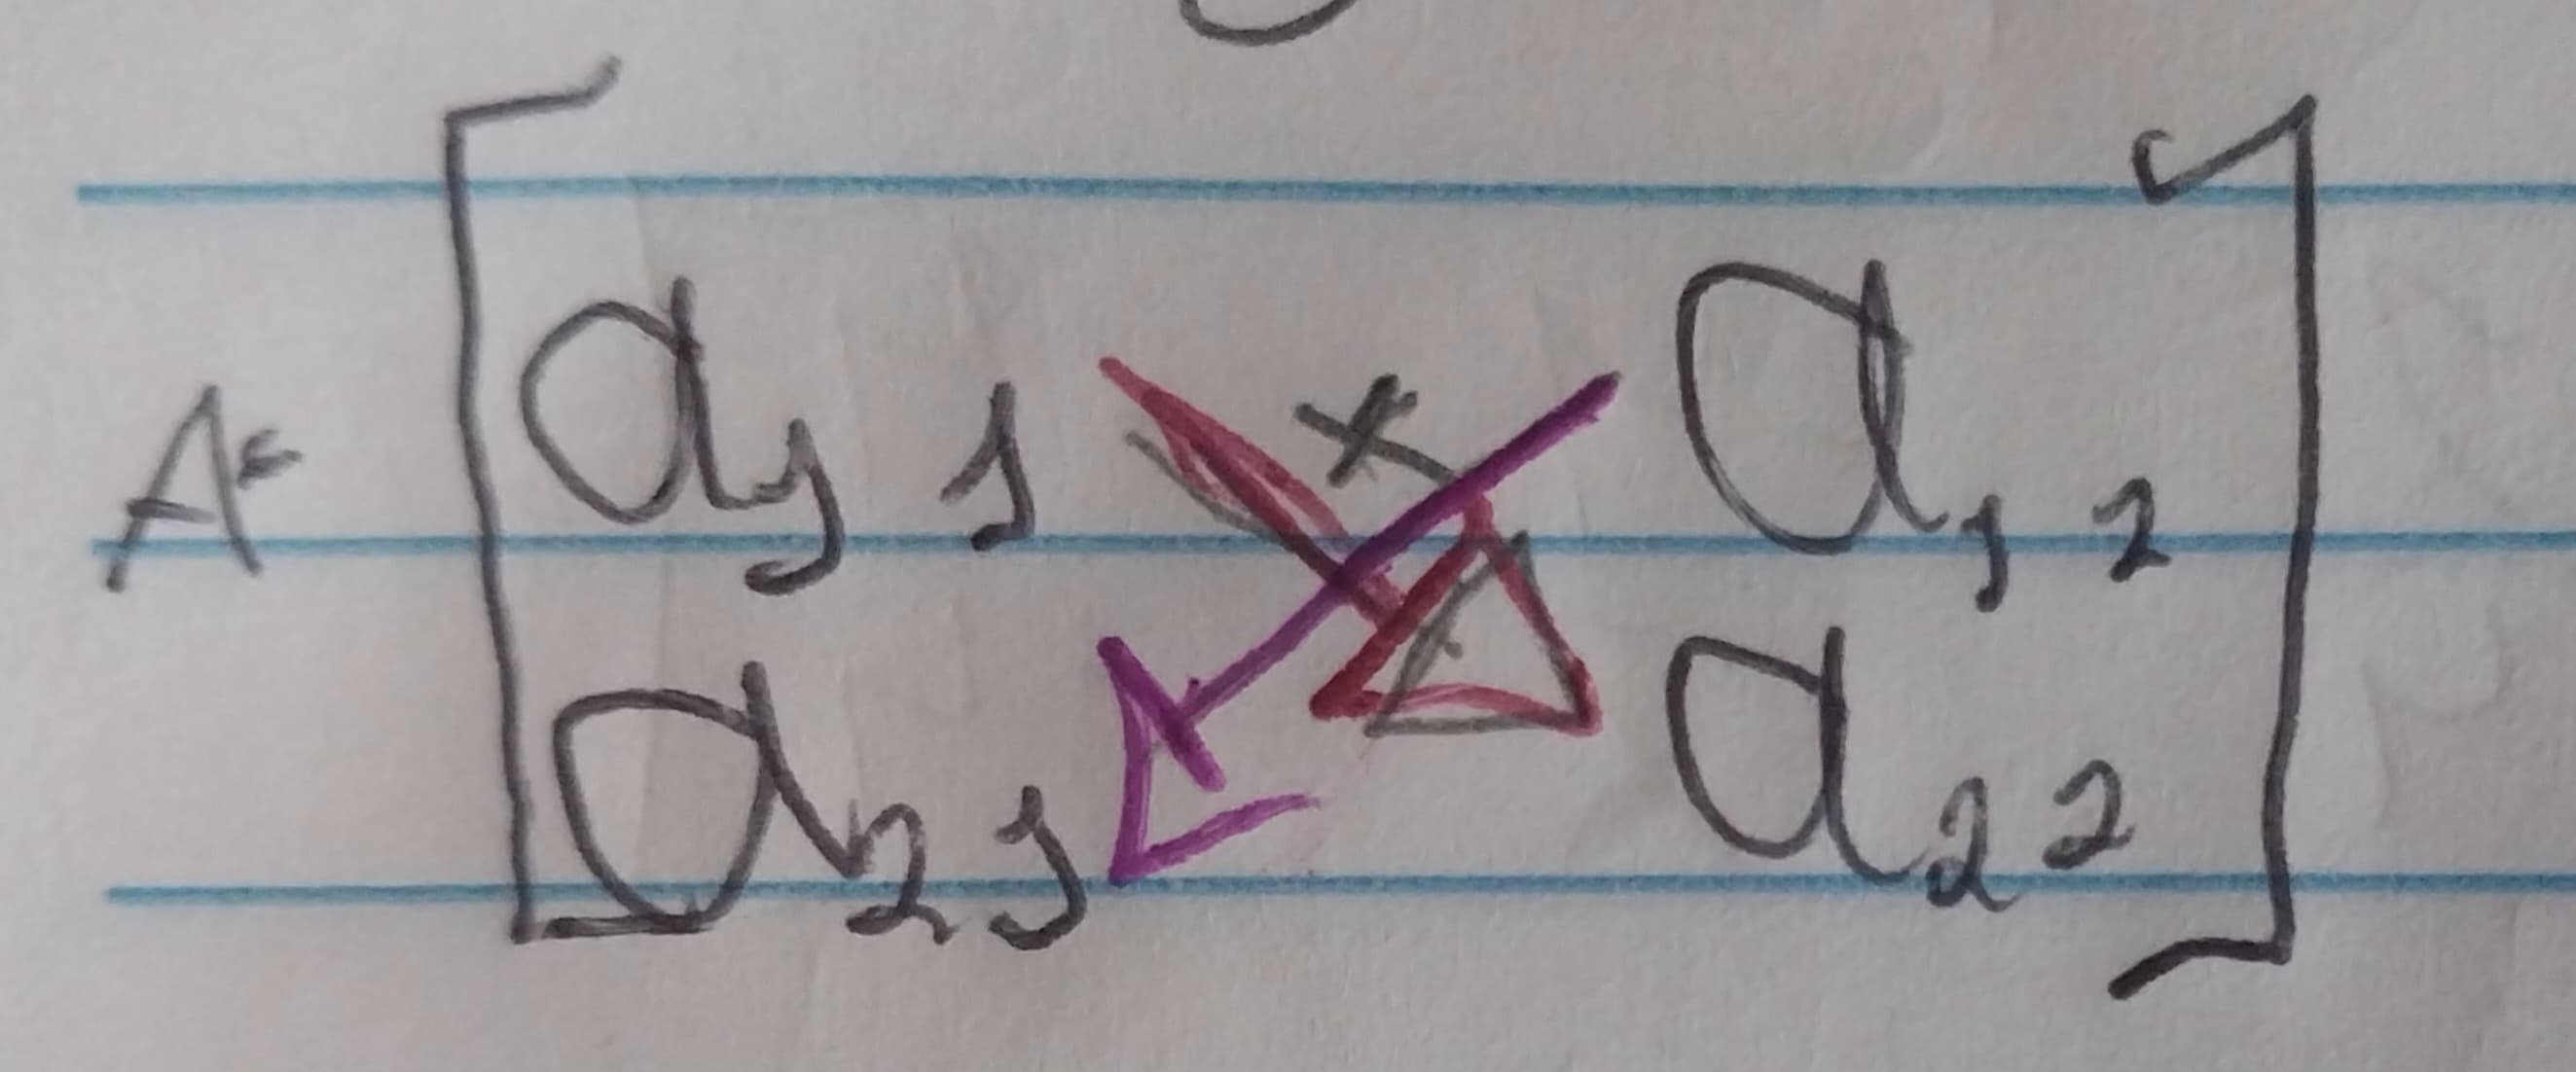 A= [a11 x a12
a21 a22]